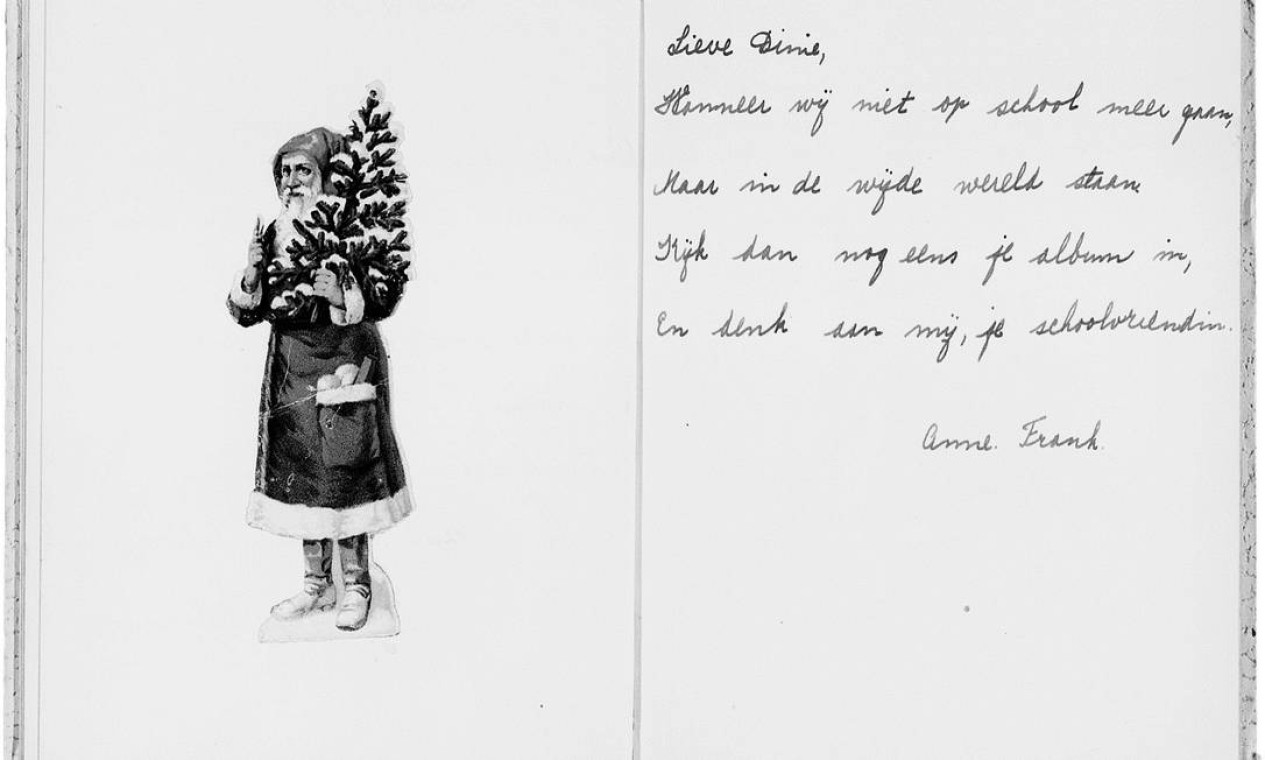 Lieve Dinie,
Wanneer wij niet op school meer gaan,
Maar in de wijde wereld staan
Kijk dan nog eens je album in,
En denk aan mij, je schoolvriendin.
Anne. Frank.